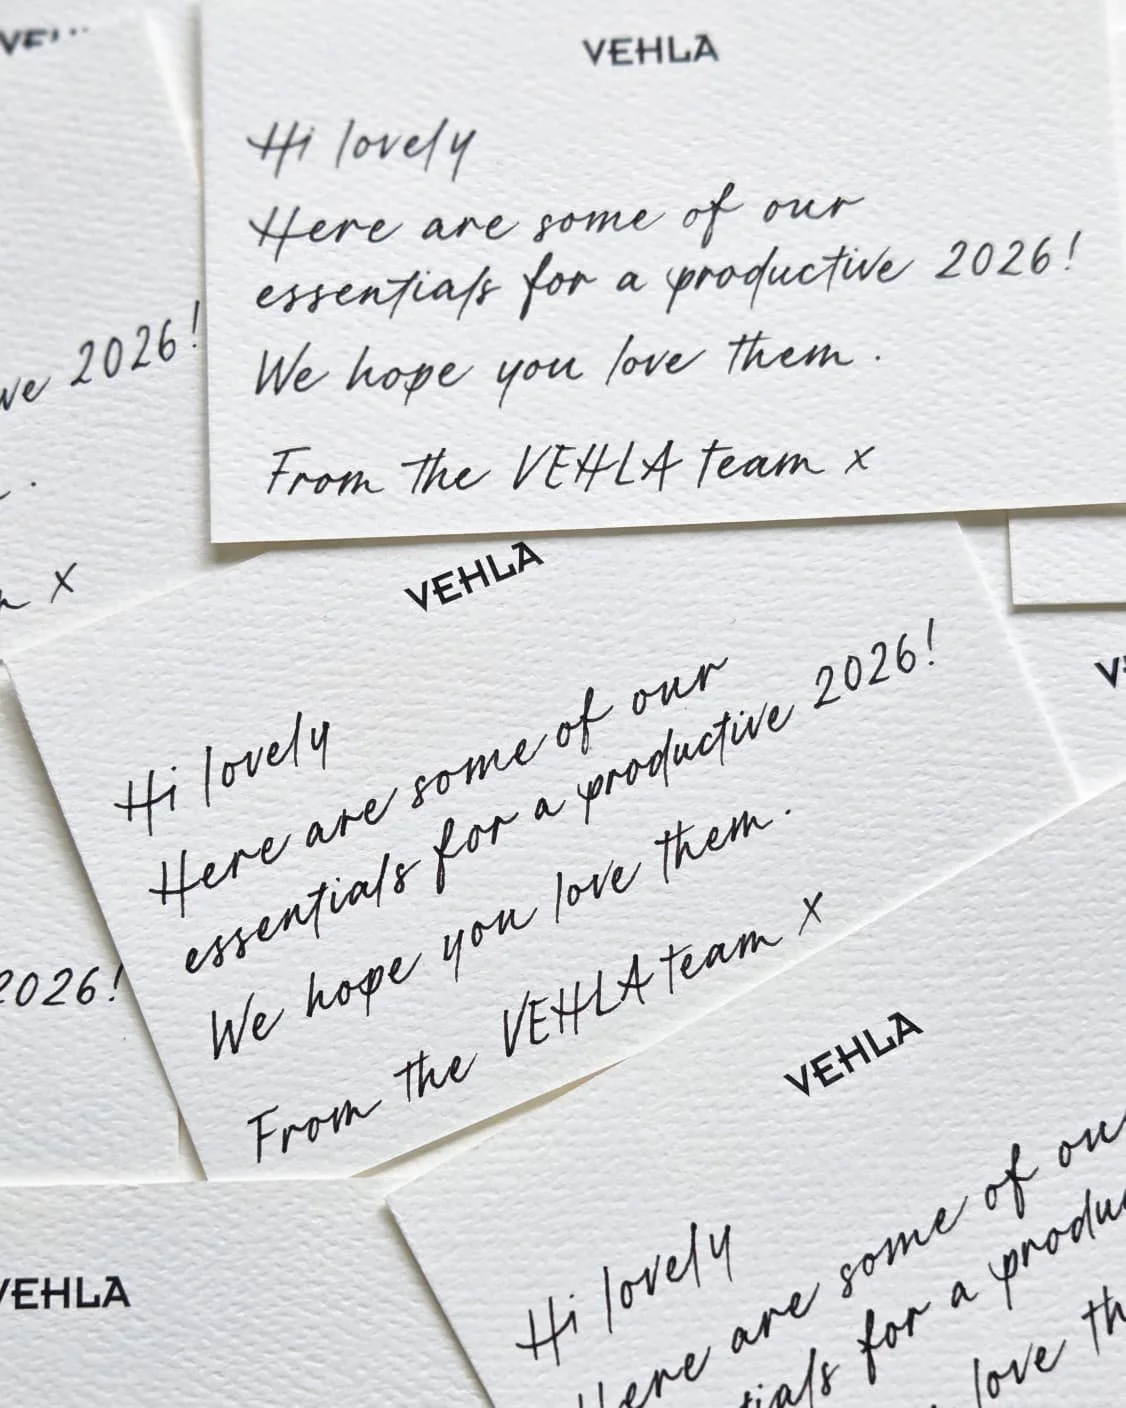 VEHLA
Hi lovely
Here are some of our
essentials for a productive 2026!
We hope you love them.
From the VEHLA team x
2026!
x
VEHLA
Hi lovely
Here are some of our
essentials for a productive 2026!
We hope you love them.
From the VEHLA team x
2026!
VEHLA
Hi lovely
Here are some of our
for a
love
VEHLA